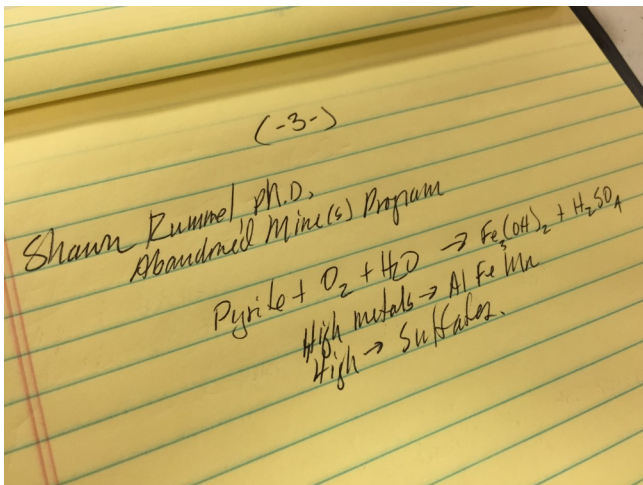 (-3-)
Shawn Rummel, Ph.D.
Abandoned Mine(s) Program
Pyrite + O₂ + H₂O → Fe₃(OH)₂ + H₂SO₄
High metals → Al Fe Mn
High → Sulfates.